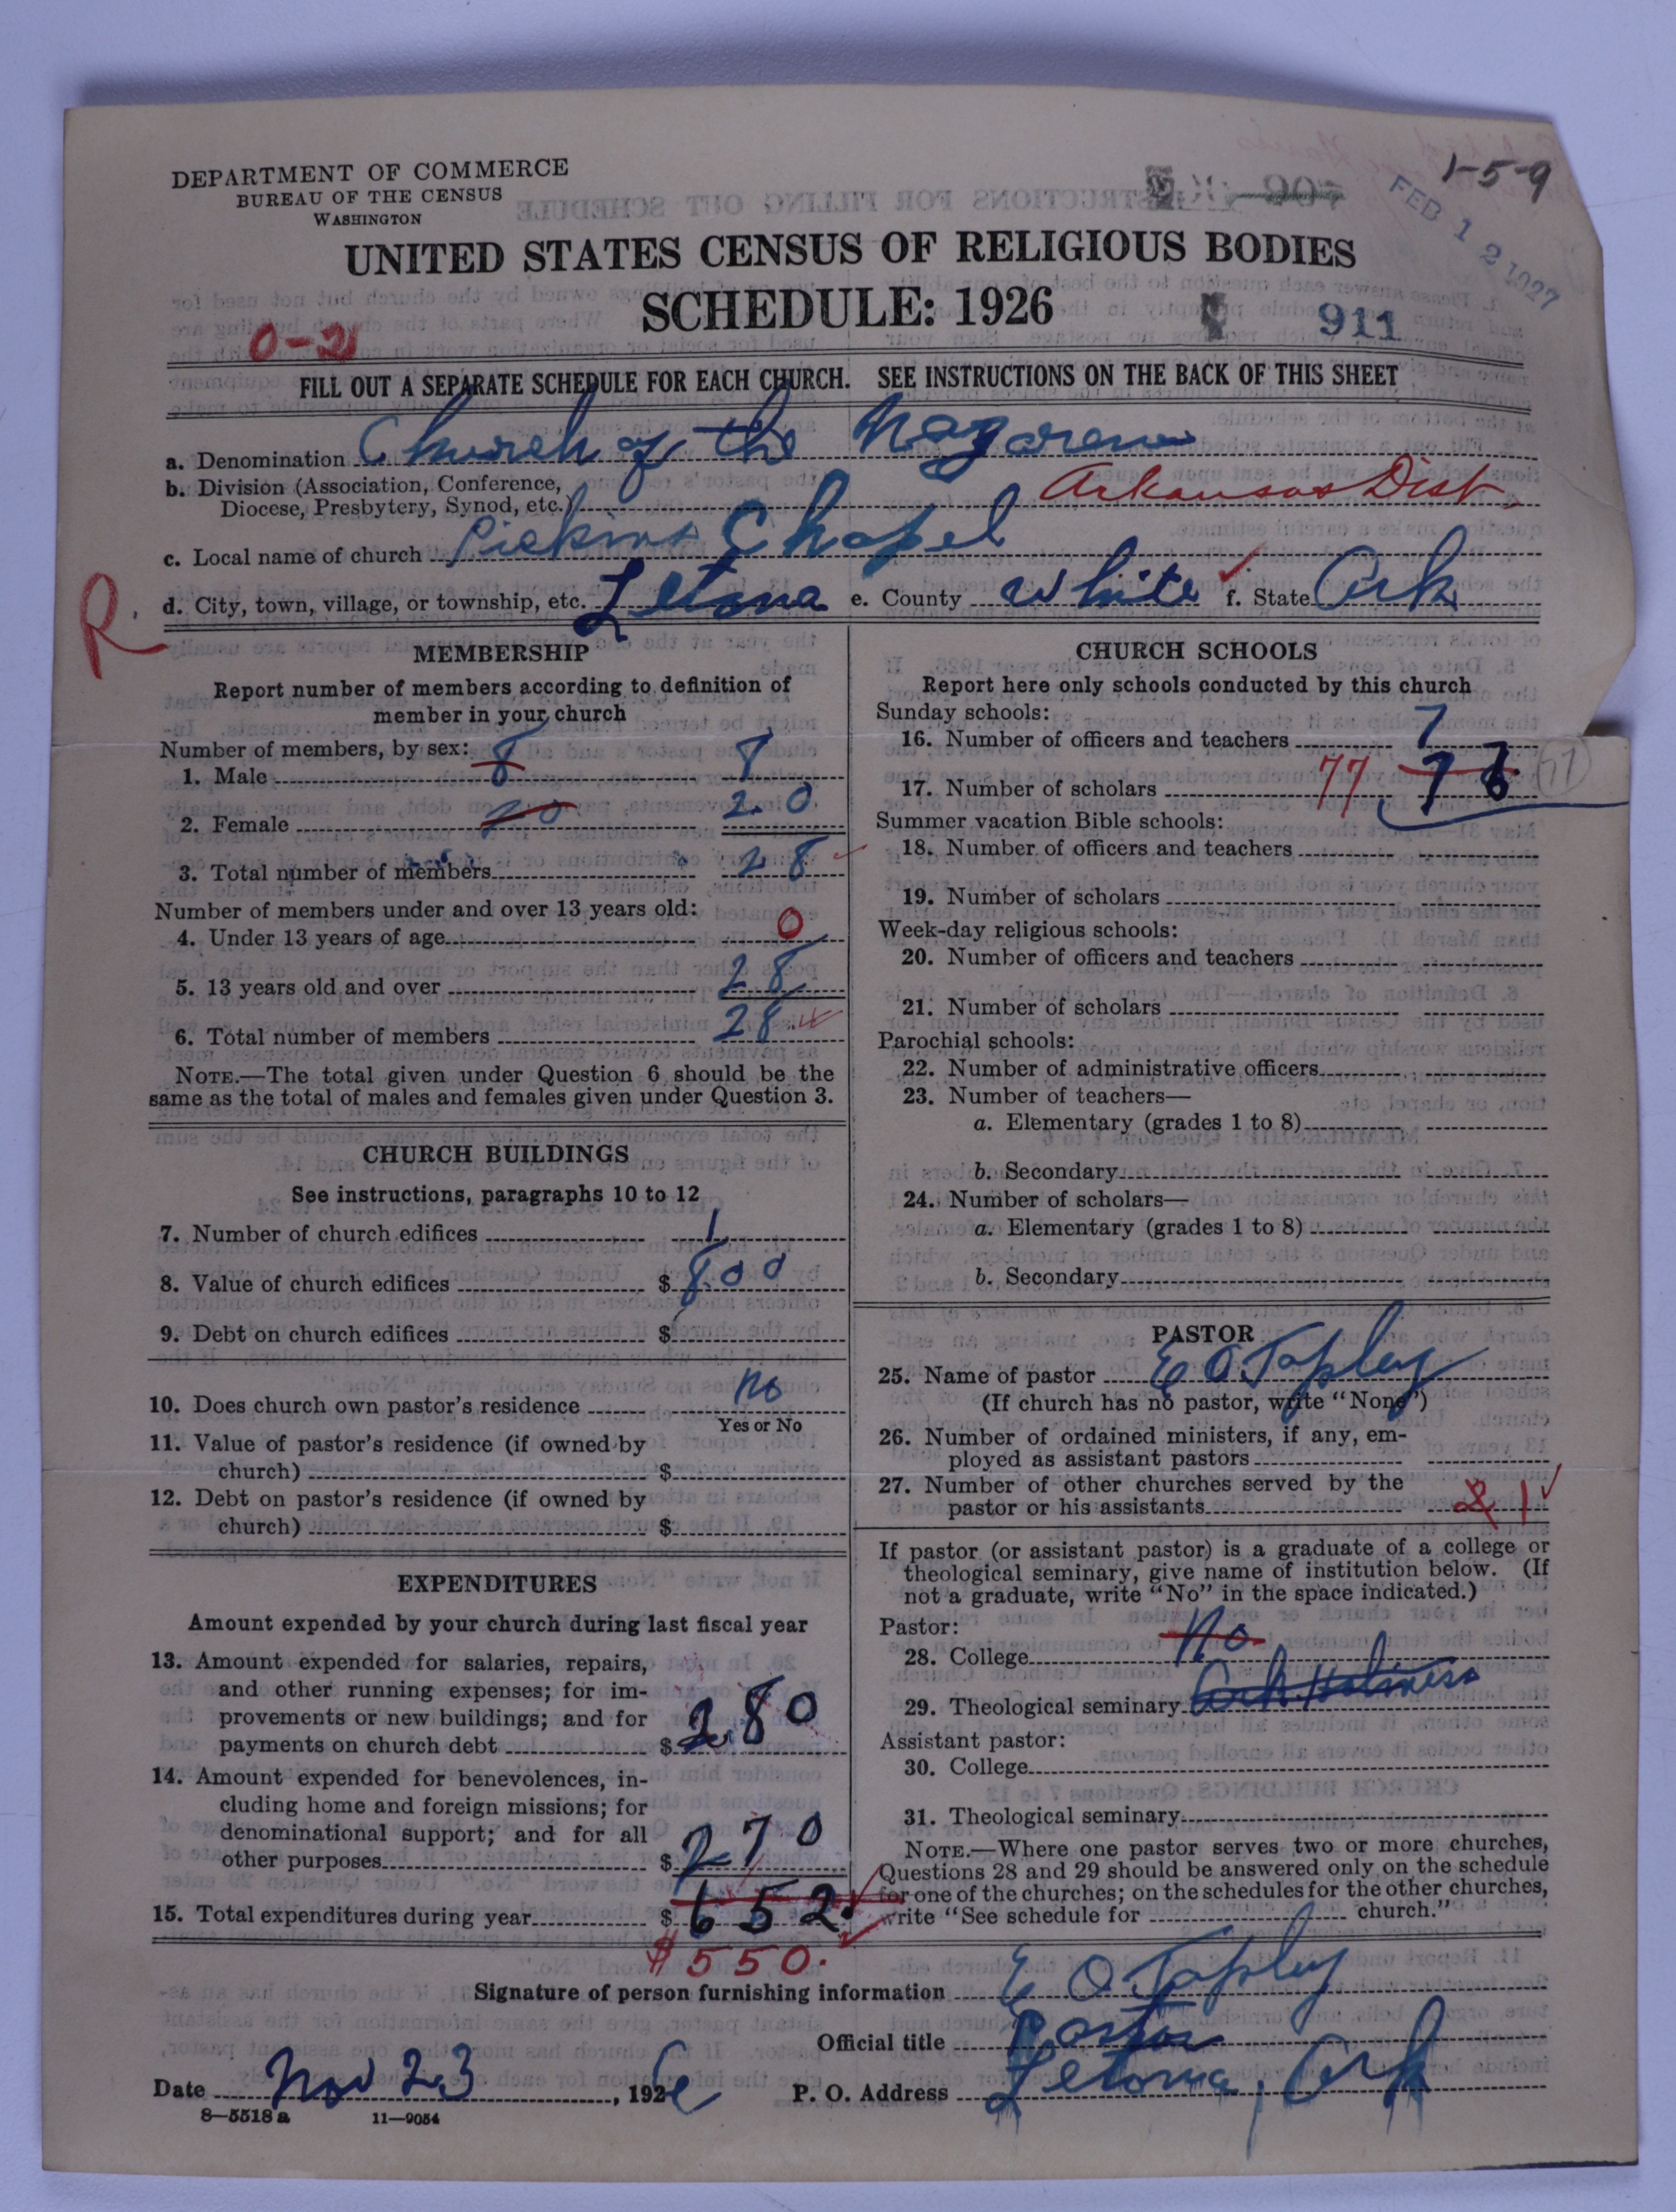 DEPARTMENT OF COMMERCE
BUREAU OF THE CENSUS
WASHINGTON
1-5-9
FEB 12 1927
UNITED STATES CENSUS OF RELIGIOUS BODIES
SCHEDULE: 1926
911
0-2
FILL OUT A SEPARATE SCHEDULE FOR EACH CHURCH. SEE INSTRUCTIONS ON THE BACK OF THIS SHEET
a. Denomination Church of the Nazarene
b. Division (Association, Conference,
Diocese, Presbytery, Synod, etc.) Arkansas Dist.
c. Local name of church Pickins Chapel
R.
d. City, town, village, or township, etc. Letona e. County White f. State Ark
MEMBERSHIP
Report number of members according to definition of
member in your church
Number of members, by sex:
1. Male 8 8
2. Female 20 20
3. Total number of members 28
Number of members under and over 13 years old:
4. Under 13 years of age 0
5. 13 years old and over 28
6. Total number of members 28
NOTE.—The total given under Question 6 should be the
same as the total of males and females given under Question 3.
CHURCH BUILDINGS
See instructions, paragraphs 10 to 12
7. Number of church edifices 1
8. Value of church edifices $ 800
9. Debt on church edifices $
10. Does church own pastor's residence No
Yes or No
11. Value of pastor's residence (if owned by
church) $
12. Debt on pastor's residence (if owned by
church) $
EXPENDITURES
Amount expended by your church during last fiscal year
13. Amount expended for salaries, repairs,
and other running expenses; for im-
provements or new buildings; and for
payments on church debt $ 280
14. Amount expended for benevolences, in-
cluding home and foreign missions; for
denominational support; and for all
other purposes $ 270
15. Total expenditures during year $ 652
$550.
CHURCH SCHOOLS
Report here only schools conducted by this church
Sunday schools:
16. Number of officers and teachers 7
17. Number of scholars 77
Summer vacation Bible schools:
18. Number of officers and teachers
19. Number of scholars
Week-day religious schools:
20. Number of officers and teachers
21. Number of scholars
Parochial schools:
22. Number of administrative officers
23. Number of teachers—
a. Elementary (grades 1 to 8)
b. Secondary
24. Number of scholars—
a. Elementary (grades 1 to 8)
b. Secondary
PASTOR
25. Name of pastor E O Tapley
(If church has no pastor, write "None")
26. Number of ordained ministers, if any, em-
ployed as assistant pastors
27. Number of other churches served by the
pastor or his assistants 2 1
If pastor (or assistant pastor) is a graduate of a college or
theological seminary, give name of institution below. (If
not a graduate, write "No" in the space indicated.)
Pastor:
28. College No
29. Theological seminary Ark Holiness
Assistant pastor:
30. College
31. Theological seminary
NOTE.—Where one pastor serves two or more churches,
Questions 28 and 29 should be answered only on the schedule
for one of the churches; on the schedules for the other churches,
write "See schedule for church."
Signature of person furnishing information E O Tapley
Official title Pastor
Date Nov 23, 1926 P. O. Address Letona, Ark
8—5518 a 11—9054